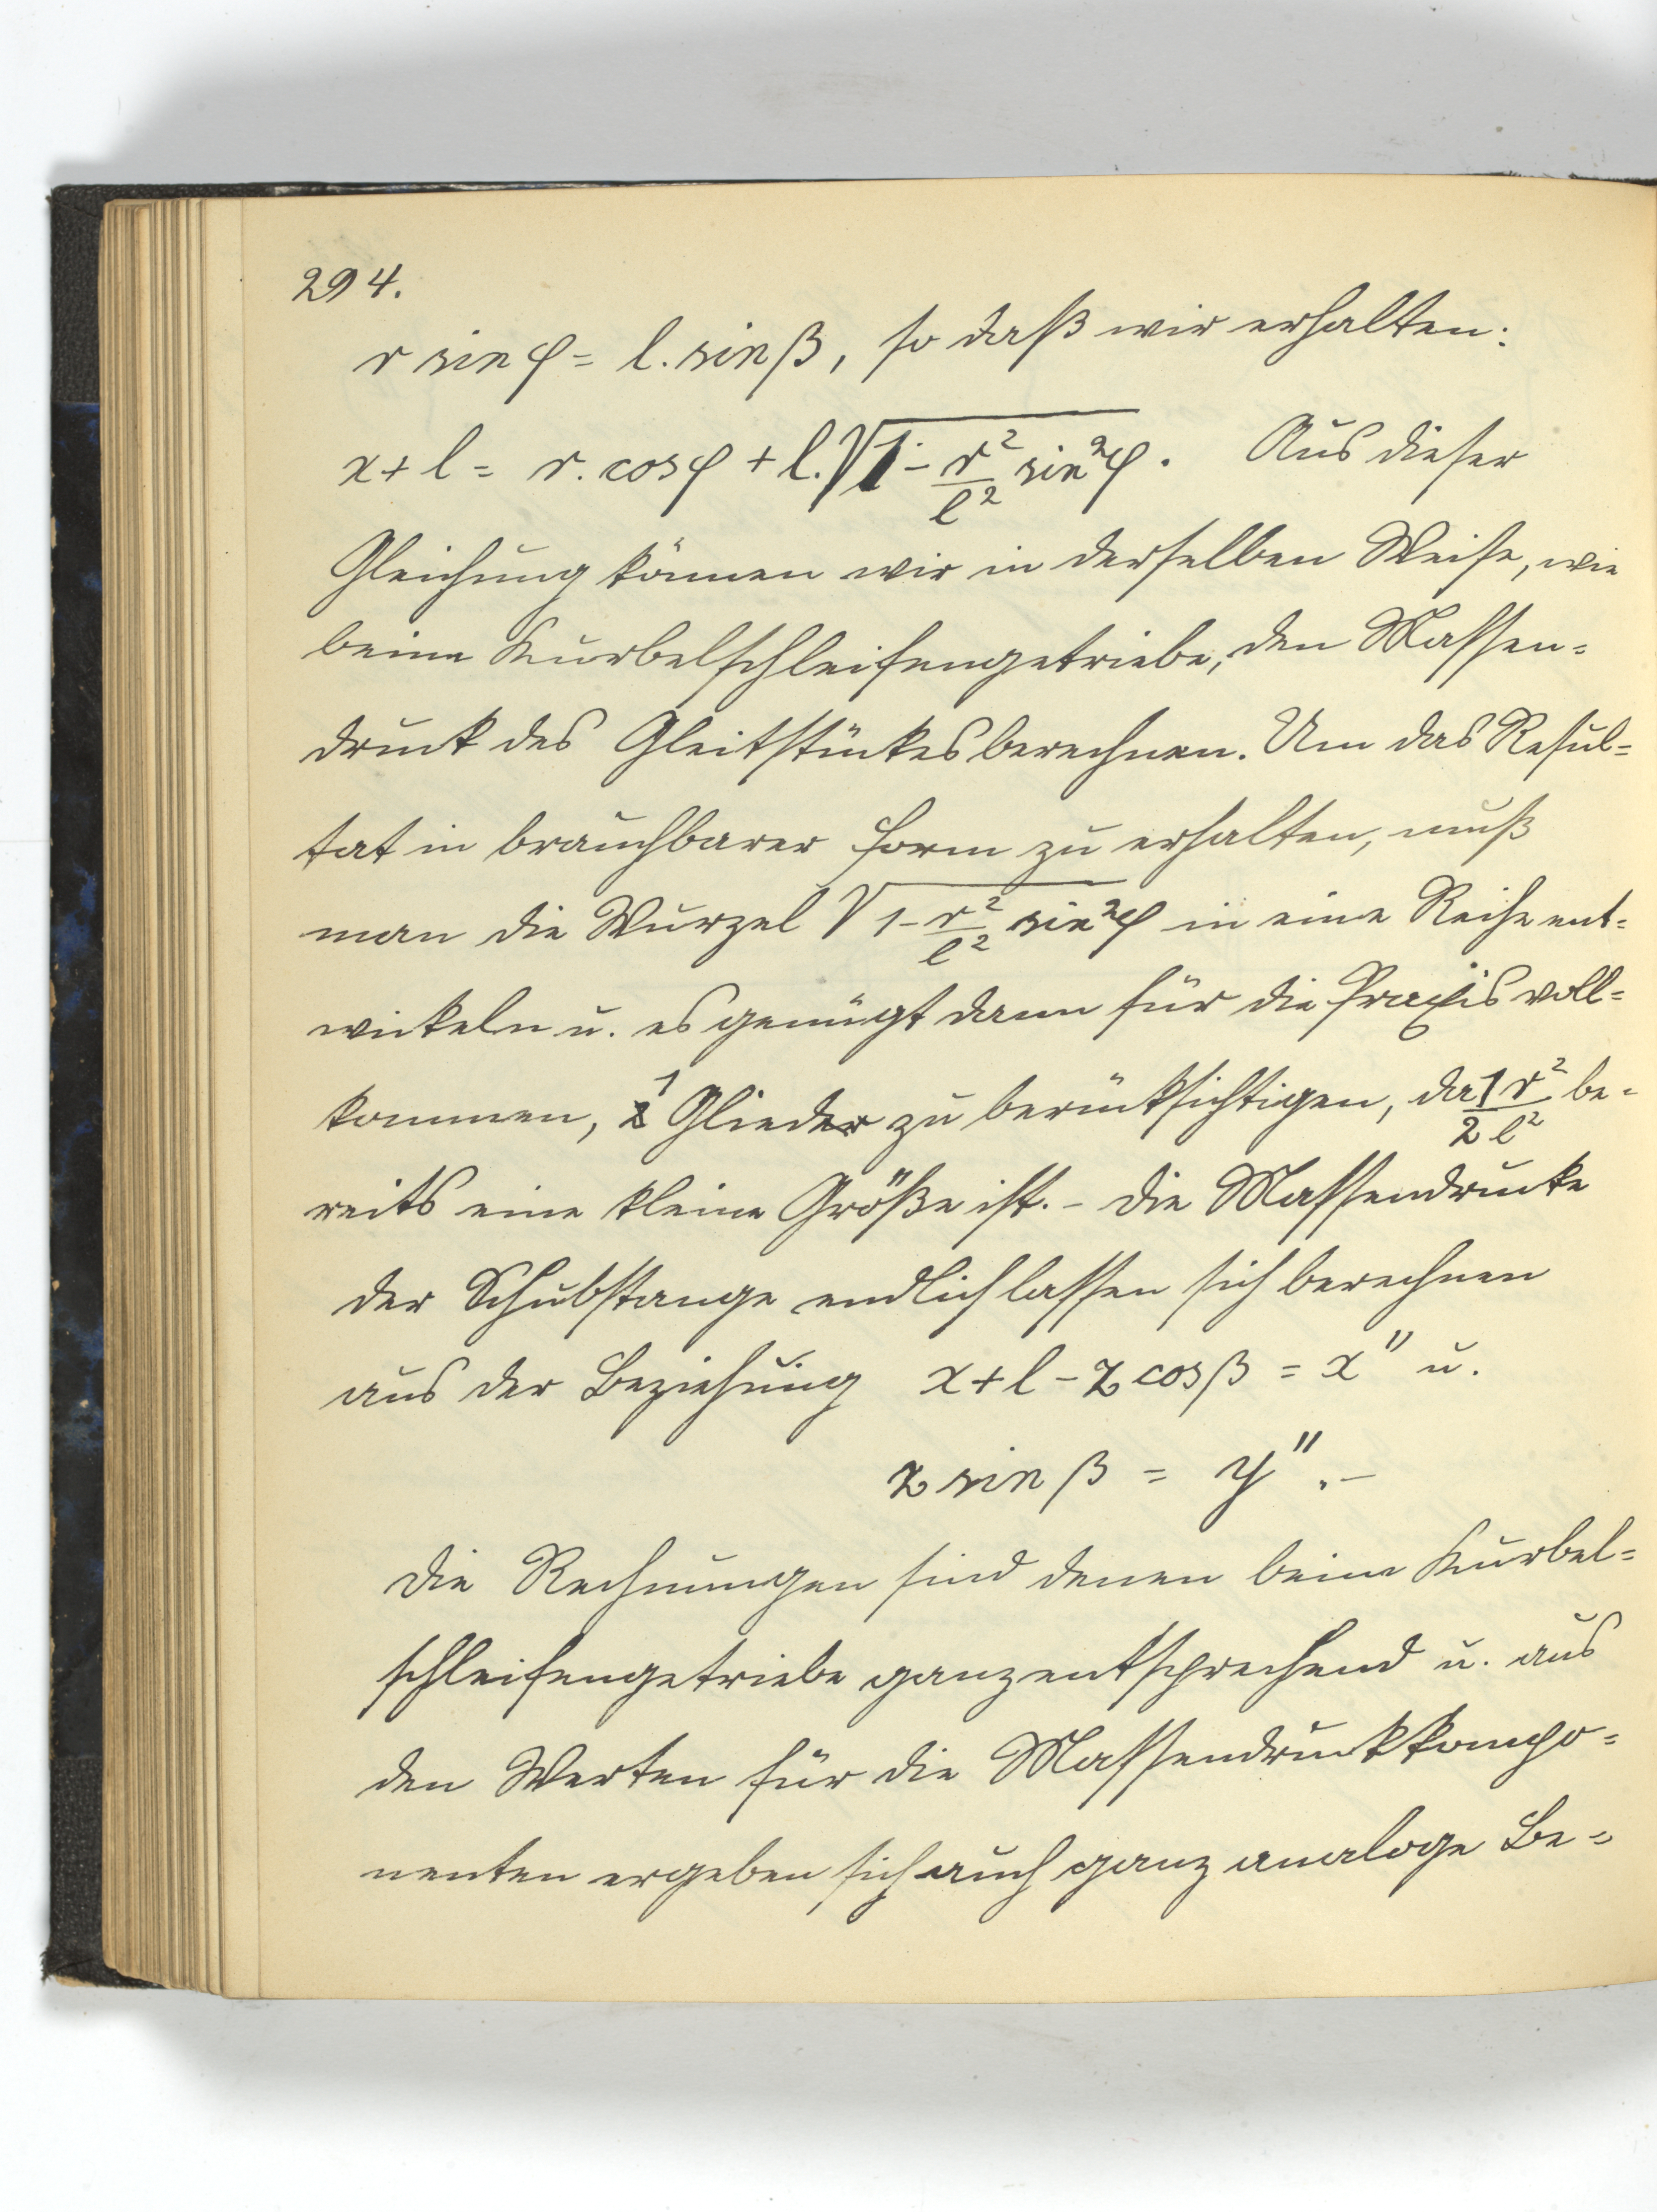 294.
r sin φ = l. sin β, so daß wir erhalten:
x + l = r. cos φ + l. √(1 - r²/l² sin²φ). Aus dieser
Gleichung können wir in derselben Weise, wie
beim Kurbelschleifengetriebe, den Massen=
druck des Gleitstückes berechnen. Um das Resul=
tat in brauchbarer Form zu erhalten, muß
man die Wurzel √(1 - r²/l² sin²φ) in eine Reihe ent=
wickeln u. es genügt dann für die Praxis voll=
kommen, 1 Glied zu berücksichtigen, da 1/2 r²/l² be=
reits eine kleine Größe ist. - Die Massendrucke
der Schubstange endlich lassen sich berechnen
aus der Beziehung x + l - z cos β = x" u.
z sin β = y". -
Die Rechnungen sind denen beim Kurbel=
schleifengetriebe ganz entsprechend u. aus
den Werten für die Massendruckkompo=
nenten ergeben sich auch ganz analoge Be=